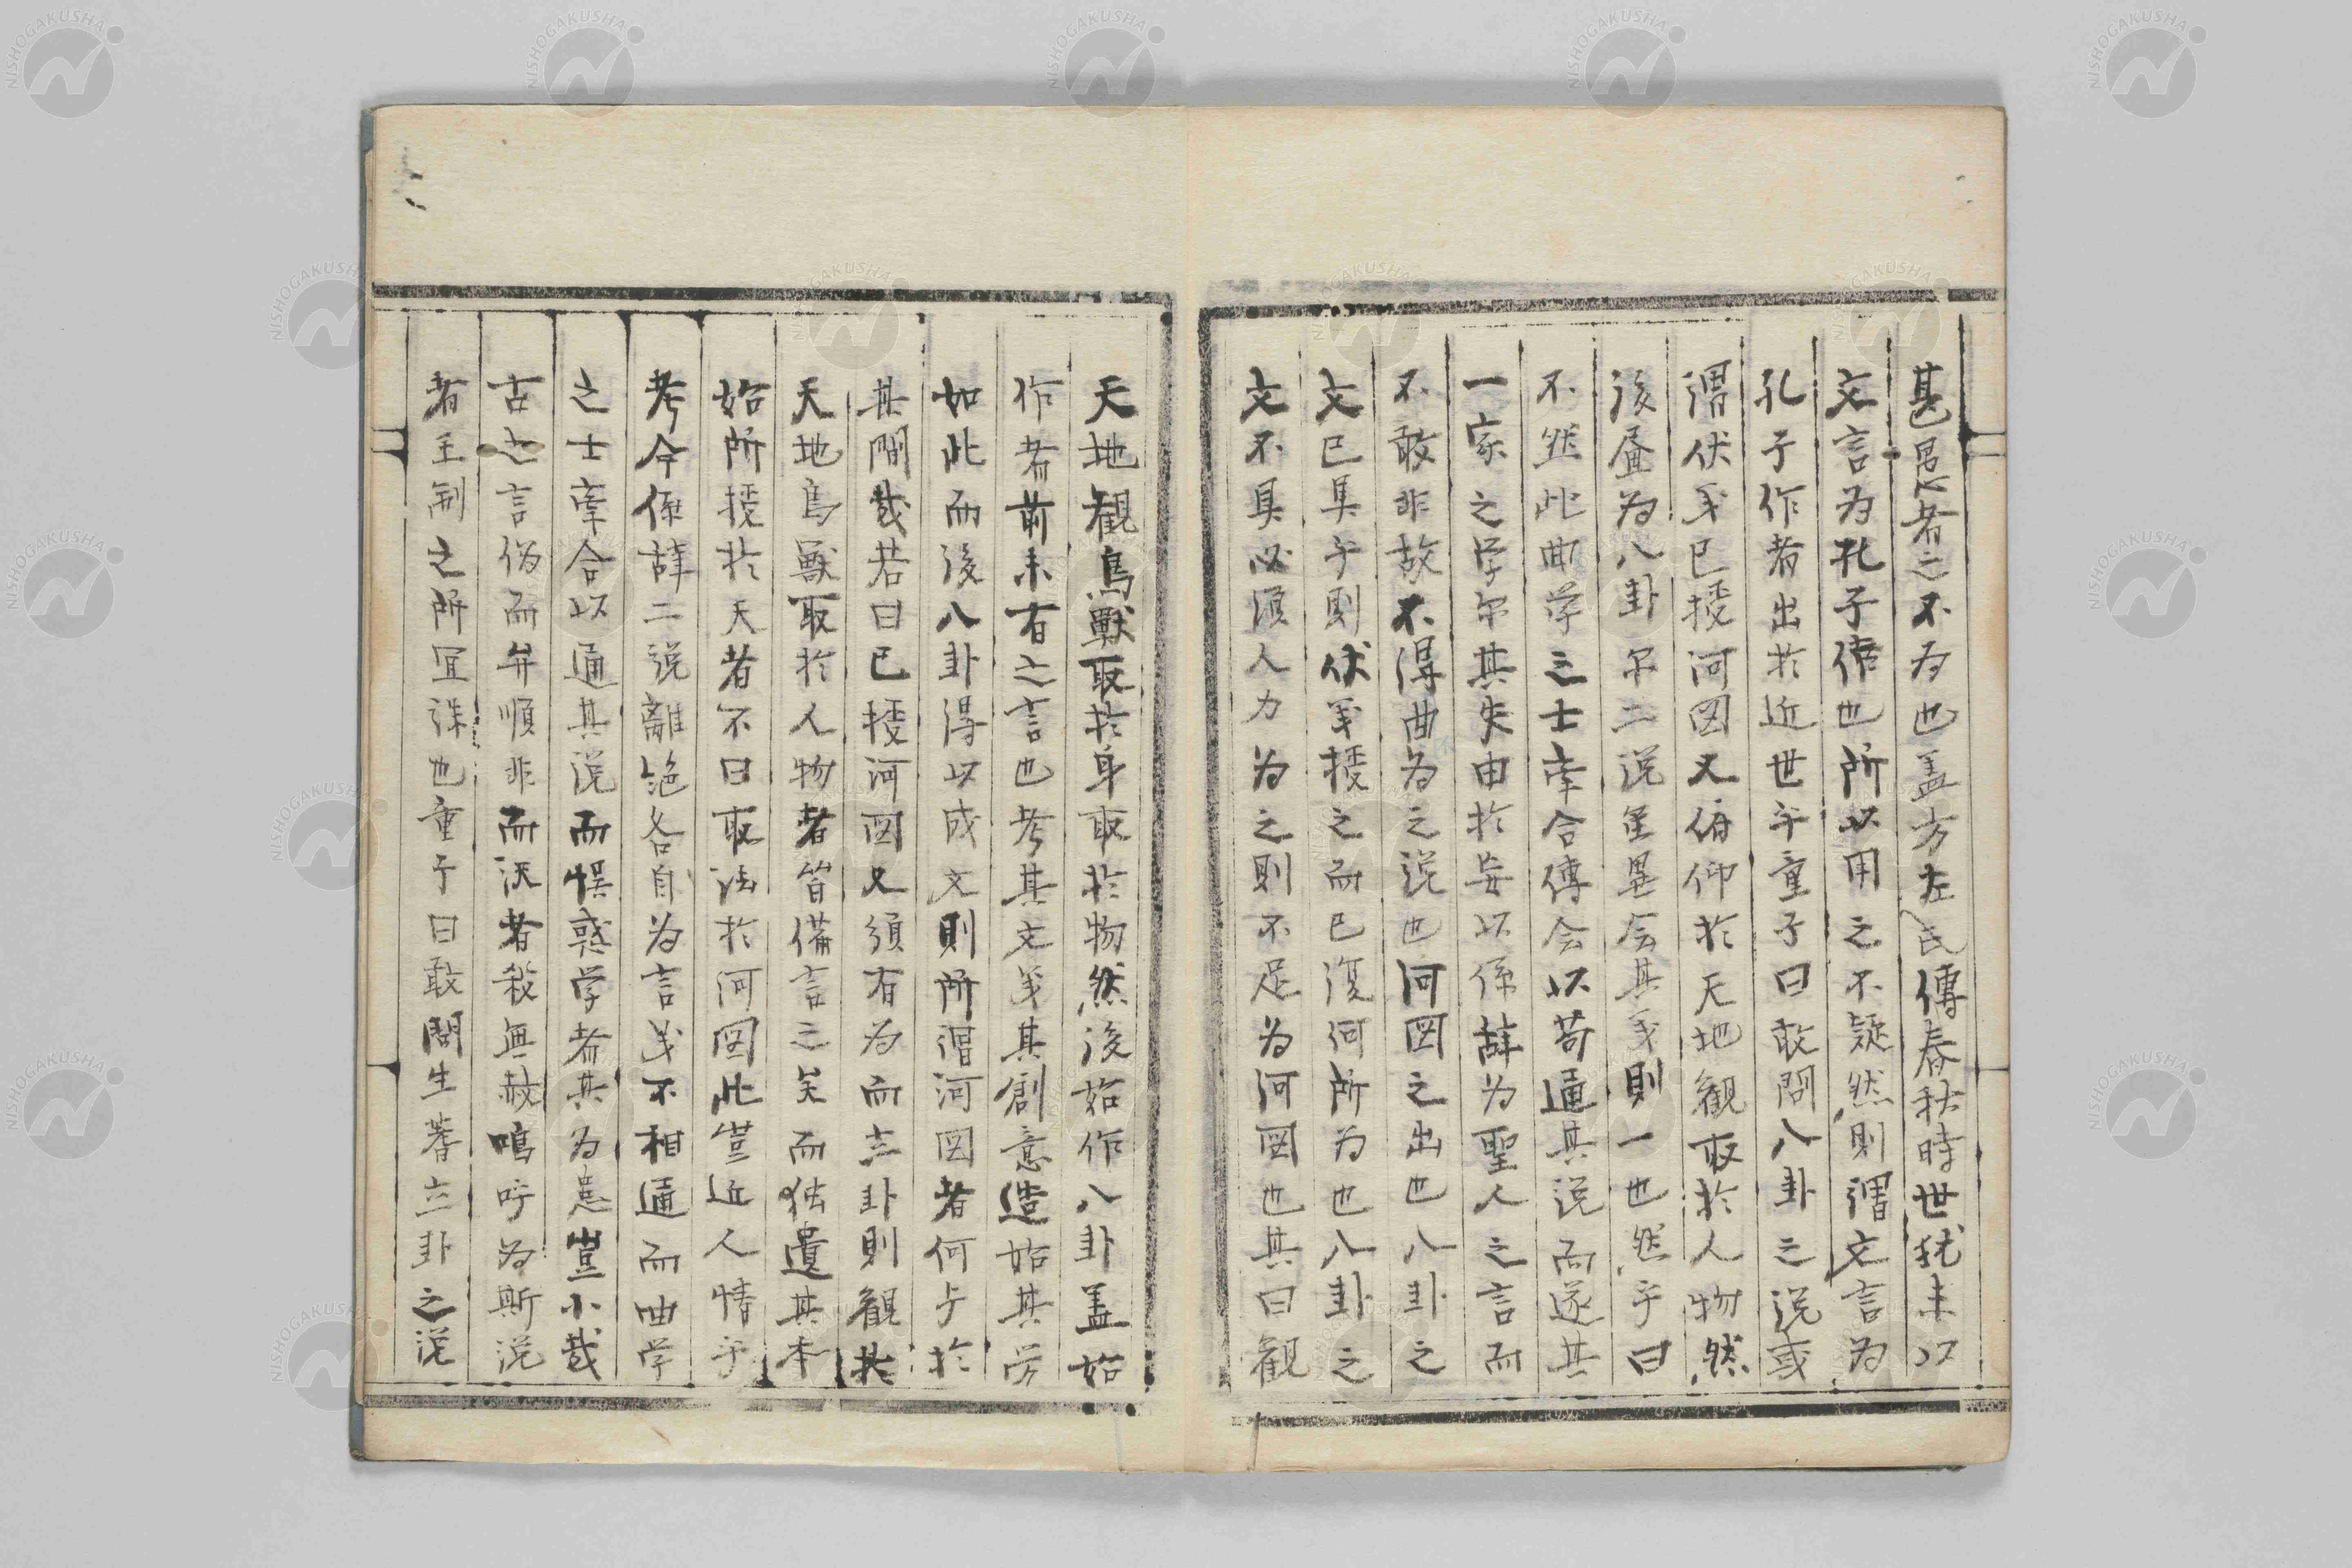 甚愚者之不为也盖方左氏傳春秋時世犹未以
文言为孔子作也所以用之不疑然則謂文言为
孔子作者出於近世乎童子曰敢問八卦之説或
謂伏羲已授河図又俯仰於天地観取於人物然
後畫为八卦尔二説虽異会其義則一也然乎曰
不然此曲学之士牽合傅会以苟通其説而遂其
一家之学尔其失由於妄以係辞为聖人之言而
不敢非故不得曲为之説也河図之出也八卦之
文已具乎則伏羲授之而已復何所为也八卦之
文不具必須人力为之則不足为河図也其曰観
天地観鳥獸取於身取於物然後始作八卦盖始
作者前未有之言也考其文義其創意造始其労
如此而後八卦得以成文則所謂河図者何与於
其間哉若曰已授河図又須有为而立卦則観共
天地鳥獸取於人物者皆備言之矣而独遺其本
始所授於天者不曰取法於河図此豈近人情乎
考今係辞二説離絶各自为言義不相通而曲学
之士牽合以通其説而惧惑学者其为患豈小哉
古之言偽而弁順非而沢者殺無赦嗚呼为斯説
者王制之所宜誅也童子曰敢問生蓍立卦之説
NISHOGAKUSHA